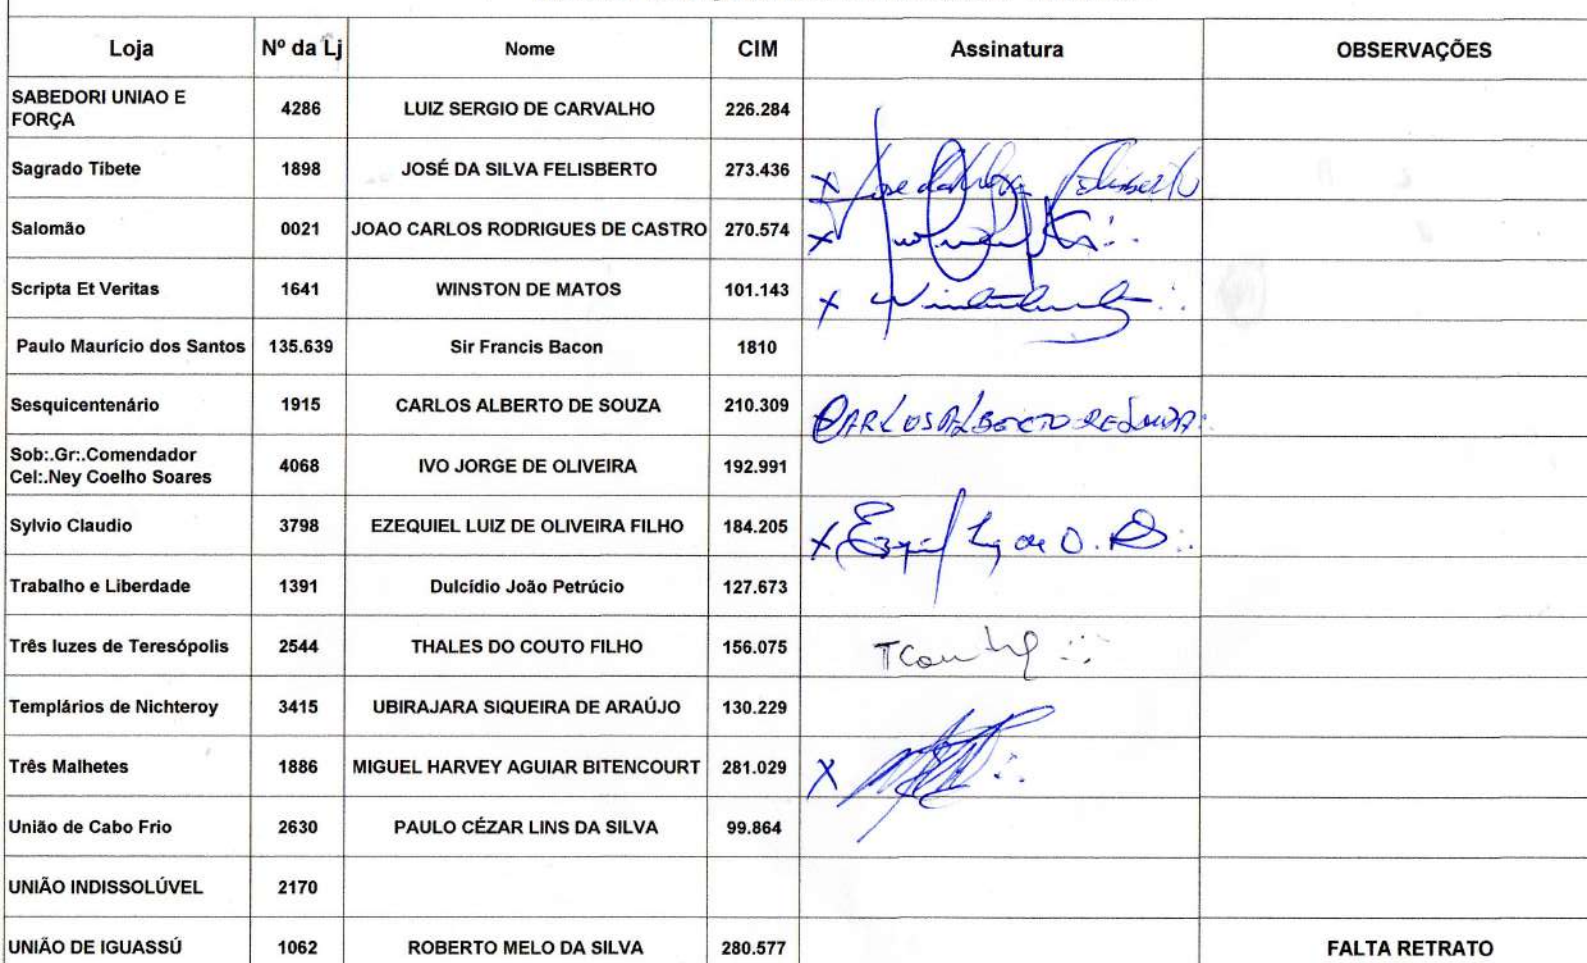 Loja Nº da Lj Nome CIM Assinatura OBSERVAÇÕES
SABEDORI UNIAO E
FORÇA 4286 LUIZ SERGIO DE CARVALHO 226.284
Sagrado Tibete 1898 JOSÉ DA SILVA FELISBERTO 273.436 x José da Silva Felisberto
Salomão 0021 JOAO CARLOS RODRIGUES DE CASTRO 270.574 x
Scripta Et Veritas 1641 WINSTON DE MATOS 101.143 x
Paulo Maurício dos Santos 135.639 Sir Francis Bacon 1810
Sesquicentenário 1915 CARLOS ALBERTO DE SOUZA 210.309 CARLOS ALBERTO DE SOUZA
Sob:.Gr:.Comendador
Cel:.Ney Coelho Soares 4068 IVO JORGE DE OLIVEIRA 192.991
Sylvio Claudio 3798 EZEQUIEL LUIZ DE OLIVEIRA FILHO 184.205 x
Trabalho e Liberdade 1391 Dulcídio João Petrúcio 127.673
Três luzes de Teresópolis 2544 THALES DO COUTO FILHO 156.075
Templários de Nichteroy 3415 UBIRAJARA SIQUEIRA DE ARAÚJO 130.229
Três Malhetes 1886 MIGUEL HARVEY AGUIAR BITENCOURT 281.029 X
União de Cabo Frio 2630 PAULO CÉZAR LINS DA SILVA 99.864
UNIÃO INDISSOLÚVEL 2170
UNIÃO DE IGUASSÚ 1062 ROBERTO MELO DA SILVA 280.577 FALTA RETRATO